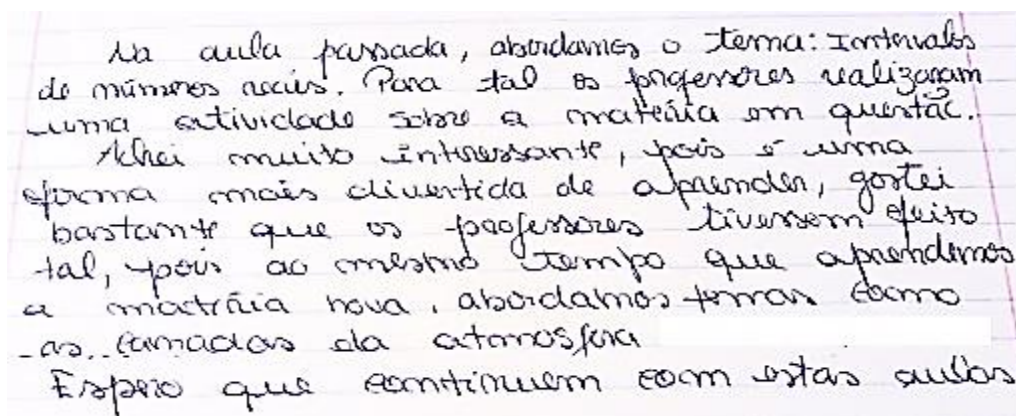 Na aula passada, abordamos o tema: Intervalos
de números reais. Para tal os professores realizaram
uma atividade sobre a matéria em questão.
Achei muito interessante, pois é uma
forma mais divertida de aprender, gostei
bastante que os professores tivessem feito
tal, pois ao mesmo tempo que aprendemos
a matéria nova, abordamos temas como
as camadas da atmosfera
Espero que continuem com estas aulas